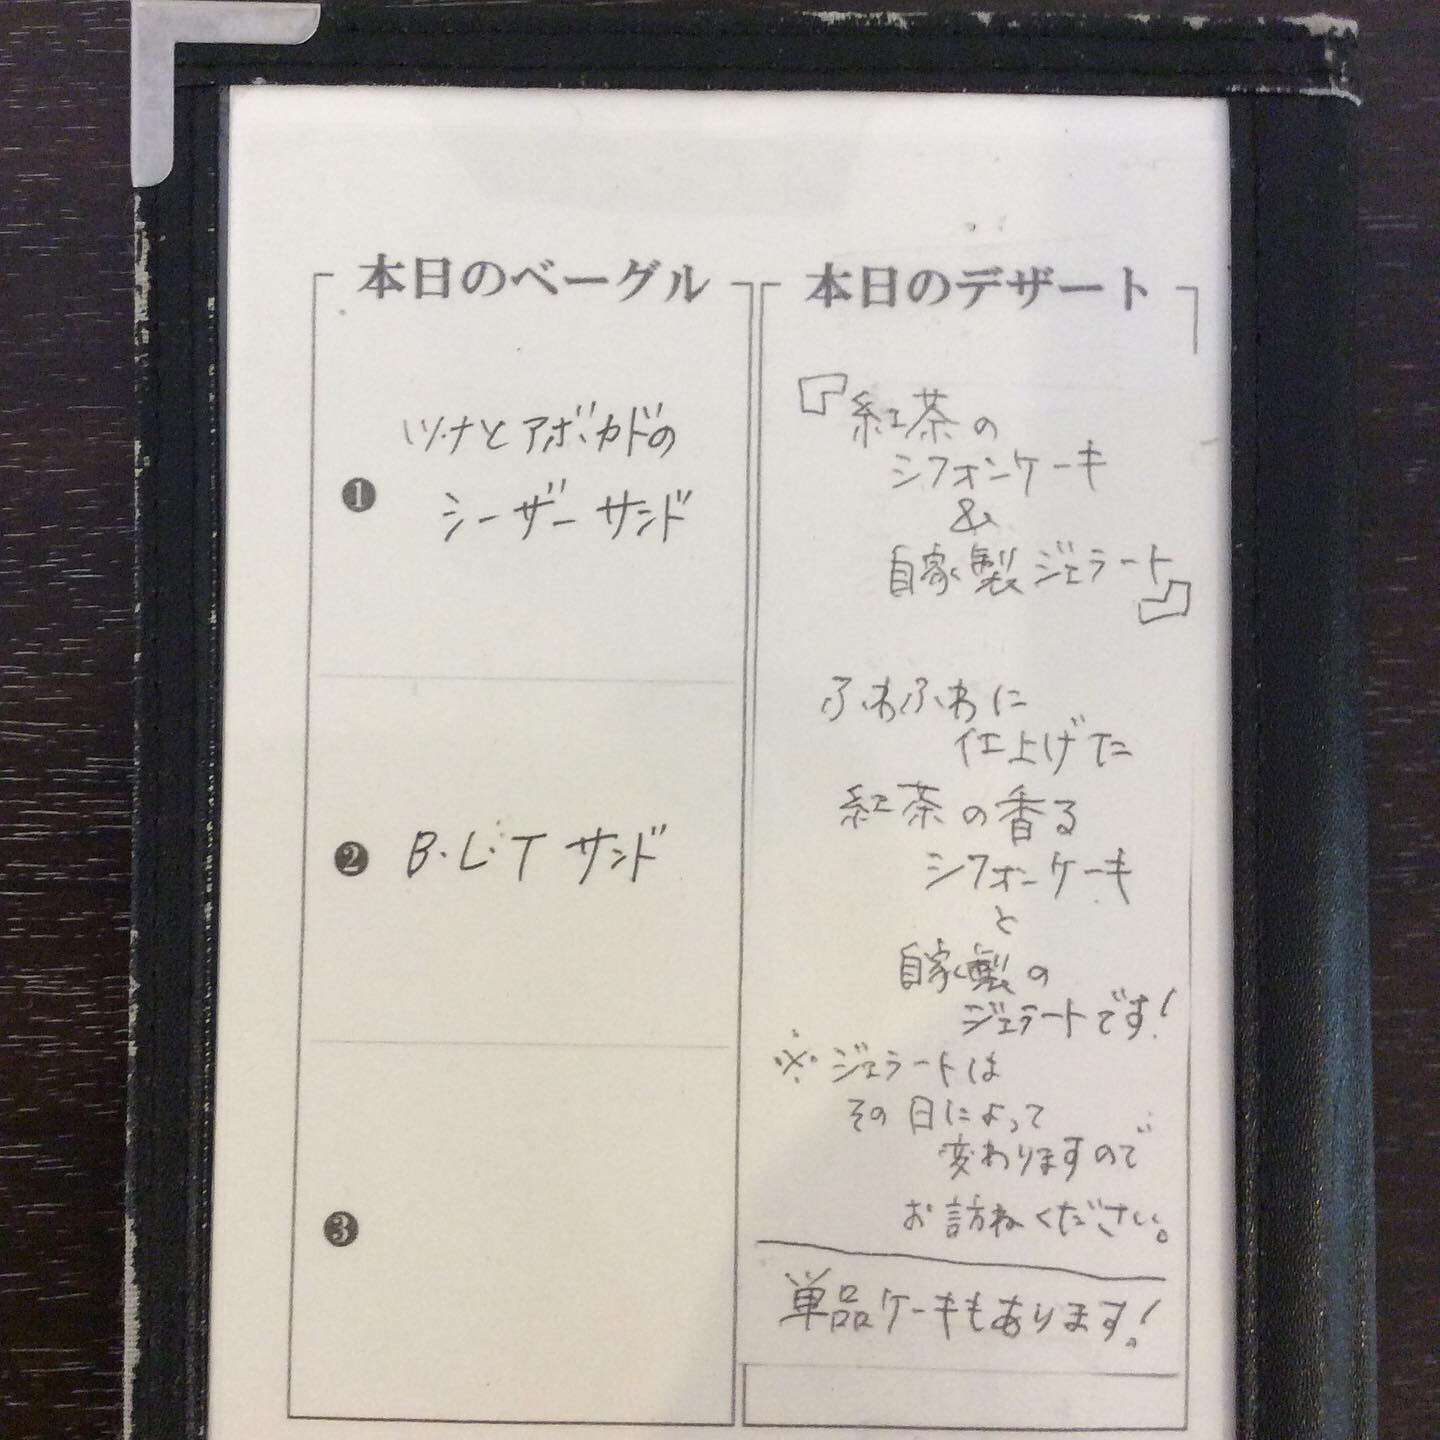 本日のベーグル
❶
ツナとアボカドの
シーザーサンド
❷ B・L・Tサンド
❸
本日のデザート
『紅茶の
シフォンケーキ
&
自家製ジェラート』
ふわふわに
仕上げた
紅茶の香る
シフォンケーキ
と
自家製の
ジェラートです!
※ジェラートは
その日によって
変わりますので
お訪ねください。
単品ケーキもあります!